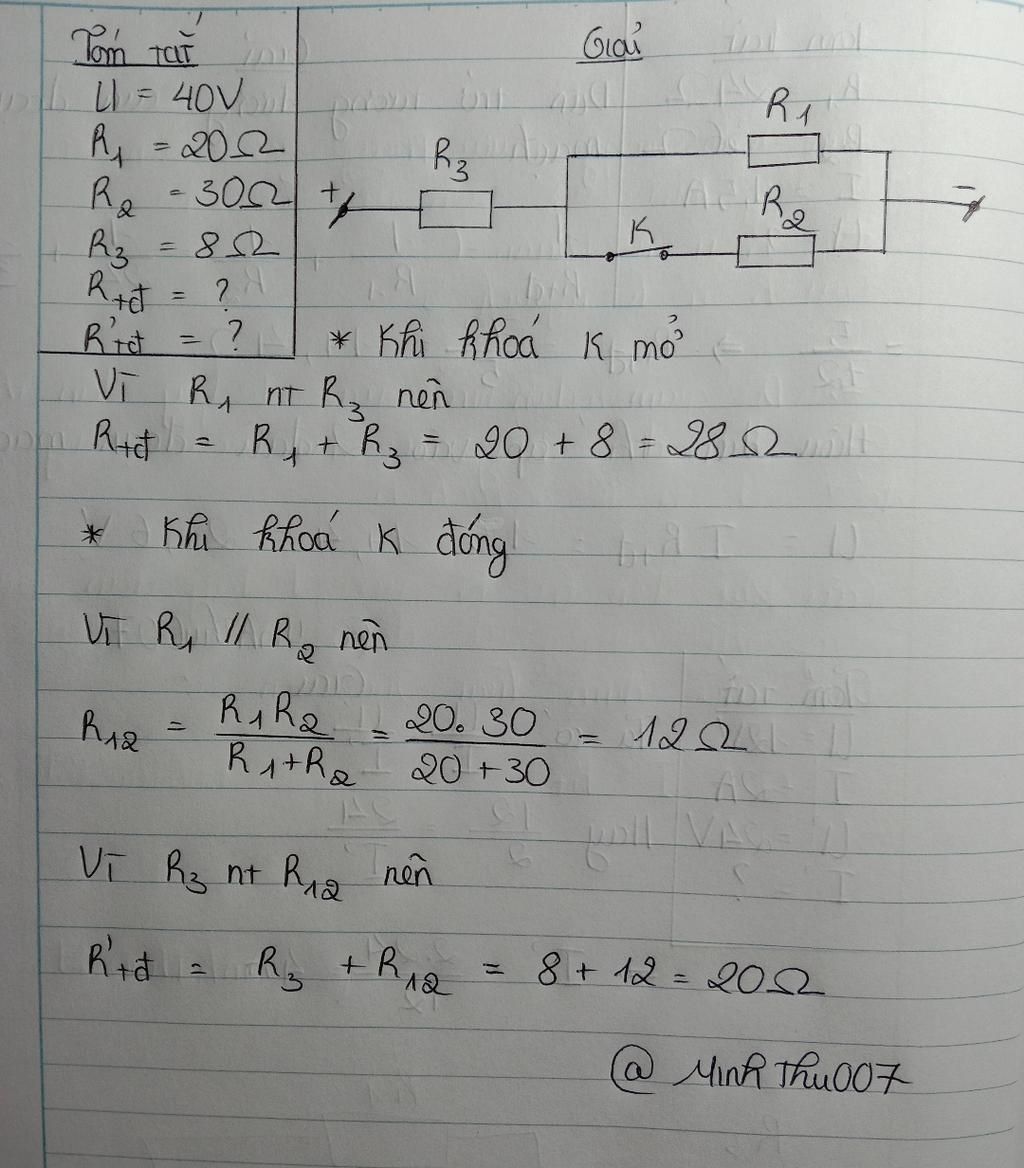 Tóm tắt
U = 40V
R1 = 20Ω
R2 = 30Ω
R3 = 8Ω
Rtđ = ?
R'tđ = ?
Giải
R1
R3
+
-
R2
K
* Khi khoá K mở
Vì R1 nt R3 nên
Rtđ = R1 + R3 = 20 + 8 = 28Ω
* Khi khoá K đóng
Vì R1 // R2 nên
R12 = R1R2 / R1+R2 = 20.30 / 20+30 = 12Ω
Vì R3 nt R12 nên
R'tđ = R3 + R12 = 8 + 12 = 20Ω
@ MinhThu007